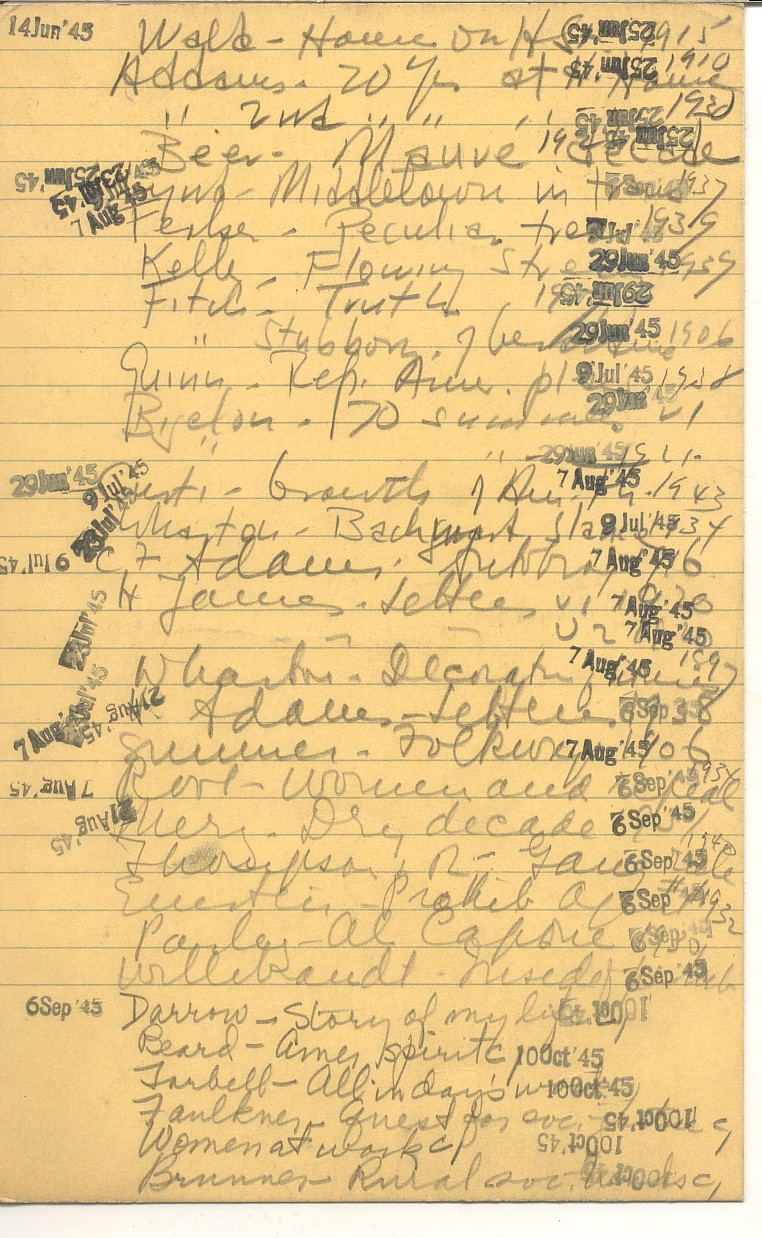 14 Jun '45 Wald - House on H S 25 Jun '45 1915
Addams - 20 Yrs at H House 25 Jun '45 1910
" 2nd " " " 25 Jun '45 1930
Beer - Mauve decade 25 Jun '45
25 Jun '45 Lynd - Middletown in trans 1937
7 Aug '45 Ferber - Peculiar treas 1939
Kelly - Flowing Stream 29 Jun '45 1939
Fitch - Truth 29 Jun '45
" Stubborn 29 Jun '45 1906
Quinn - Rep. Amer. pl 9 Jul '45 1938
Bigelow - 70 summers v1 29 Jun '45
" " 29 Jun '45
29 Jun '45 9 Jul '45 Curti - Growth of Am. 7 Aug '45 1943
23 Jul '45 Wharton - Backward Glance 9 Jul '45 1934
9 Jul '45 C F Adams - Autobiog 7 Aug '45 1916
H James - Letters v1 7 Aug '45 1920
23 Jul '45 v2 7 Aug '45
Wharton - Decoration of houses 7 Aug '45 1897
7 Aug '45 21 Aug '45 Adams - Letters 6 Sep '45 1938
Sumner - Folkways 7 Aug '45 1906
7 Aug '45 Root - Women and 6 Sep '45
21 Aug '45 Merz - Dry decade 6 Sep '45 1931
Thompson, R - 6 Sep '45
Einstein - Prohib Agent #1 6 Sep '45 1932
Pasley - Al Capone 6 Sep '45
Willebrandt - Inside of prohib 6 Sep '45
6 Sep '45 Darrow - Story of my life 10 Oct '45
Beard - Amer spirit cy 10 Oct '45
Tarbell - All in day's work 10 Oct '45
Faulkner - Quest for soc. justice 10 Oct '45
Women at work cy 10 Oct '45
Brunner - Rural soc. trends cy 10 Oct '45